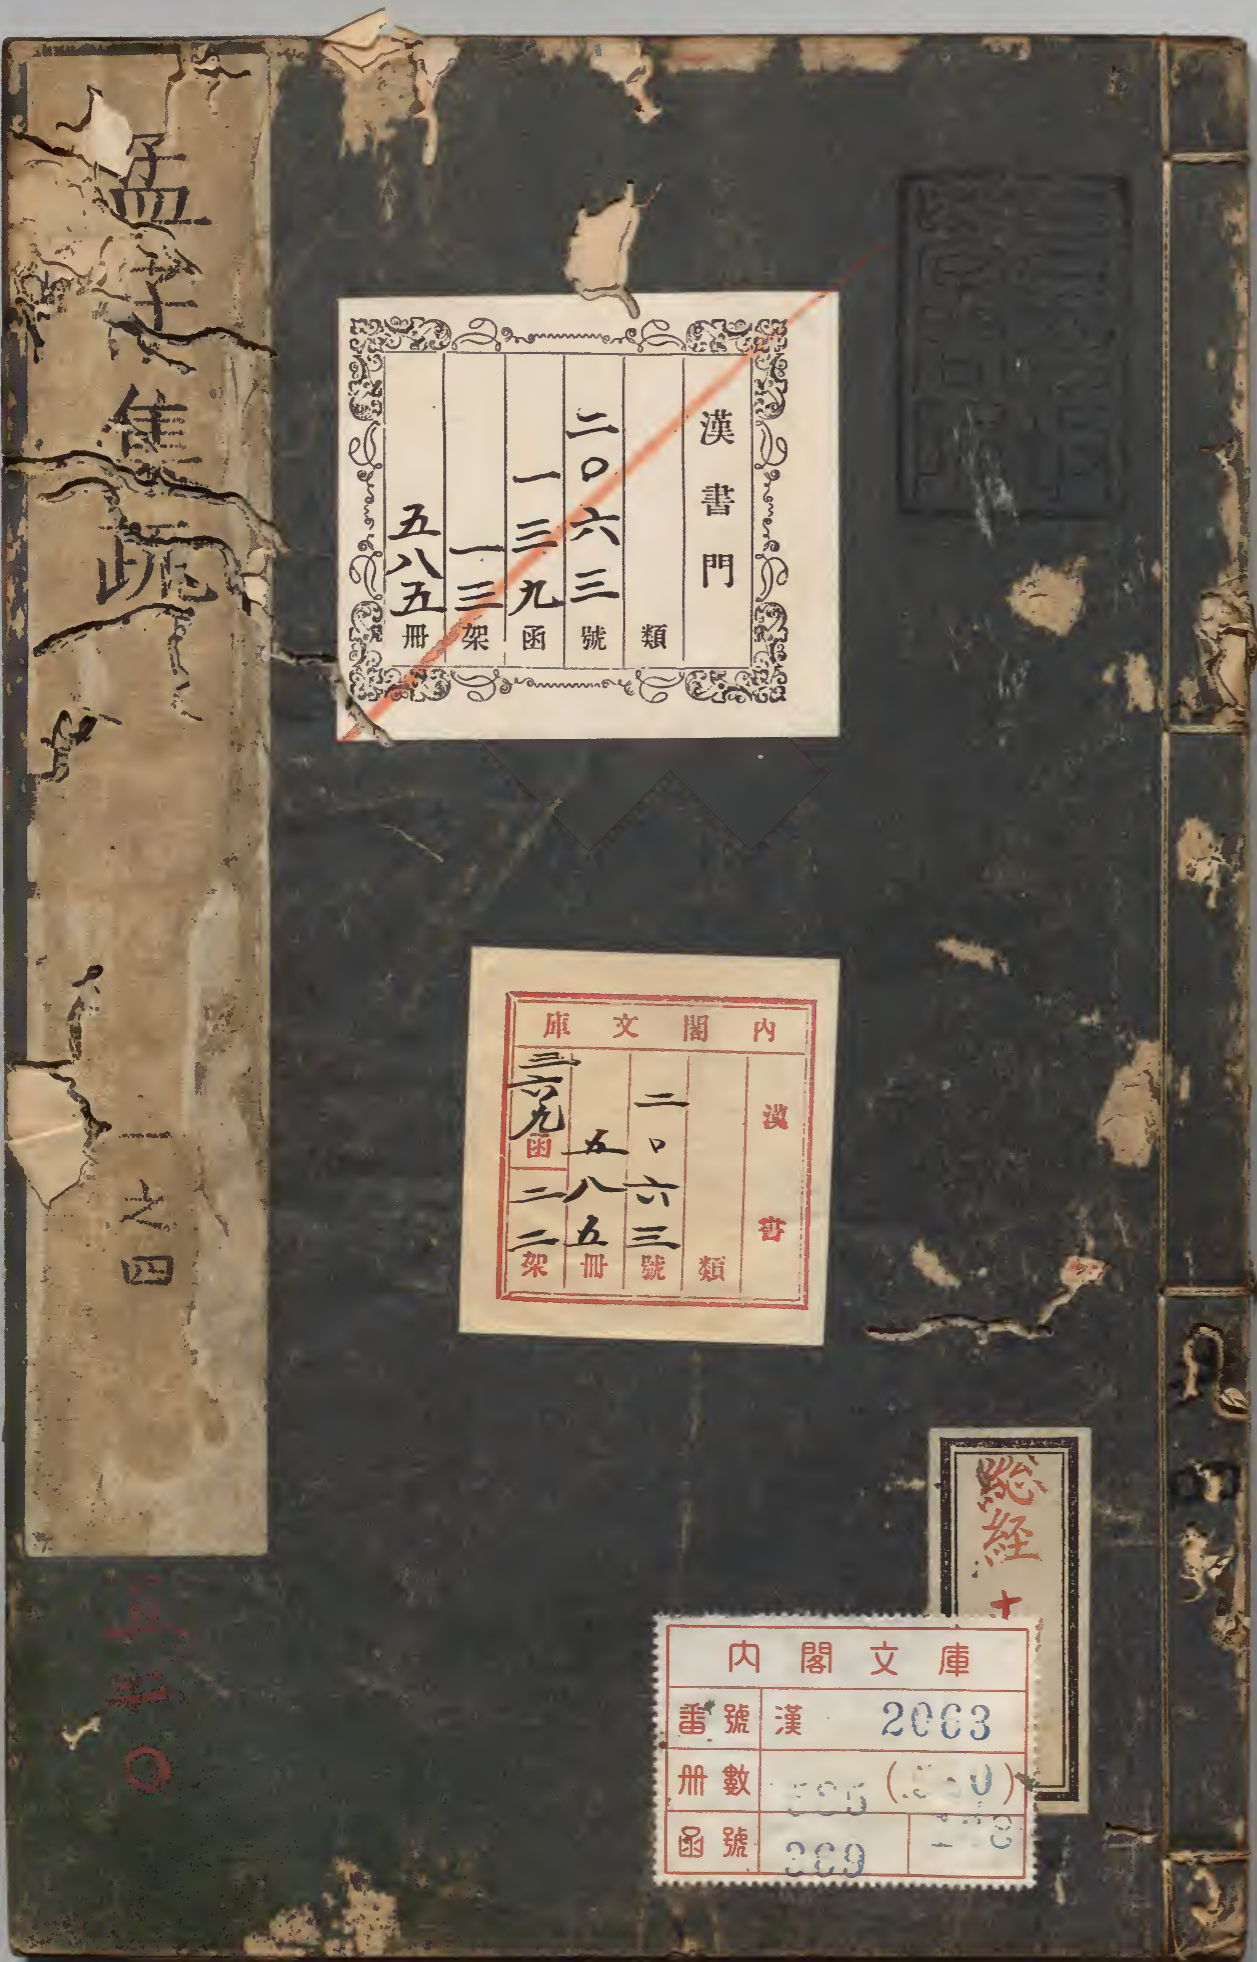 孟子集疏
一之四
漢書門
類
二〇六三號
一三九函
一三架
五八五冊
內閣文庫
漢書
類
二〇六三號
五八五冊
三六九函
二二架
総経
十
內閣文庫
番號 漢 2063
冊數 585 (530)
函號 369
五三〇